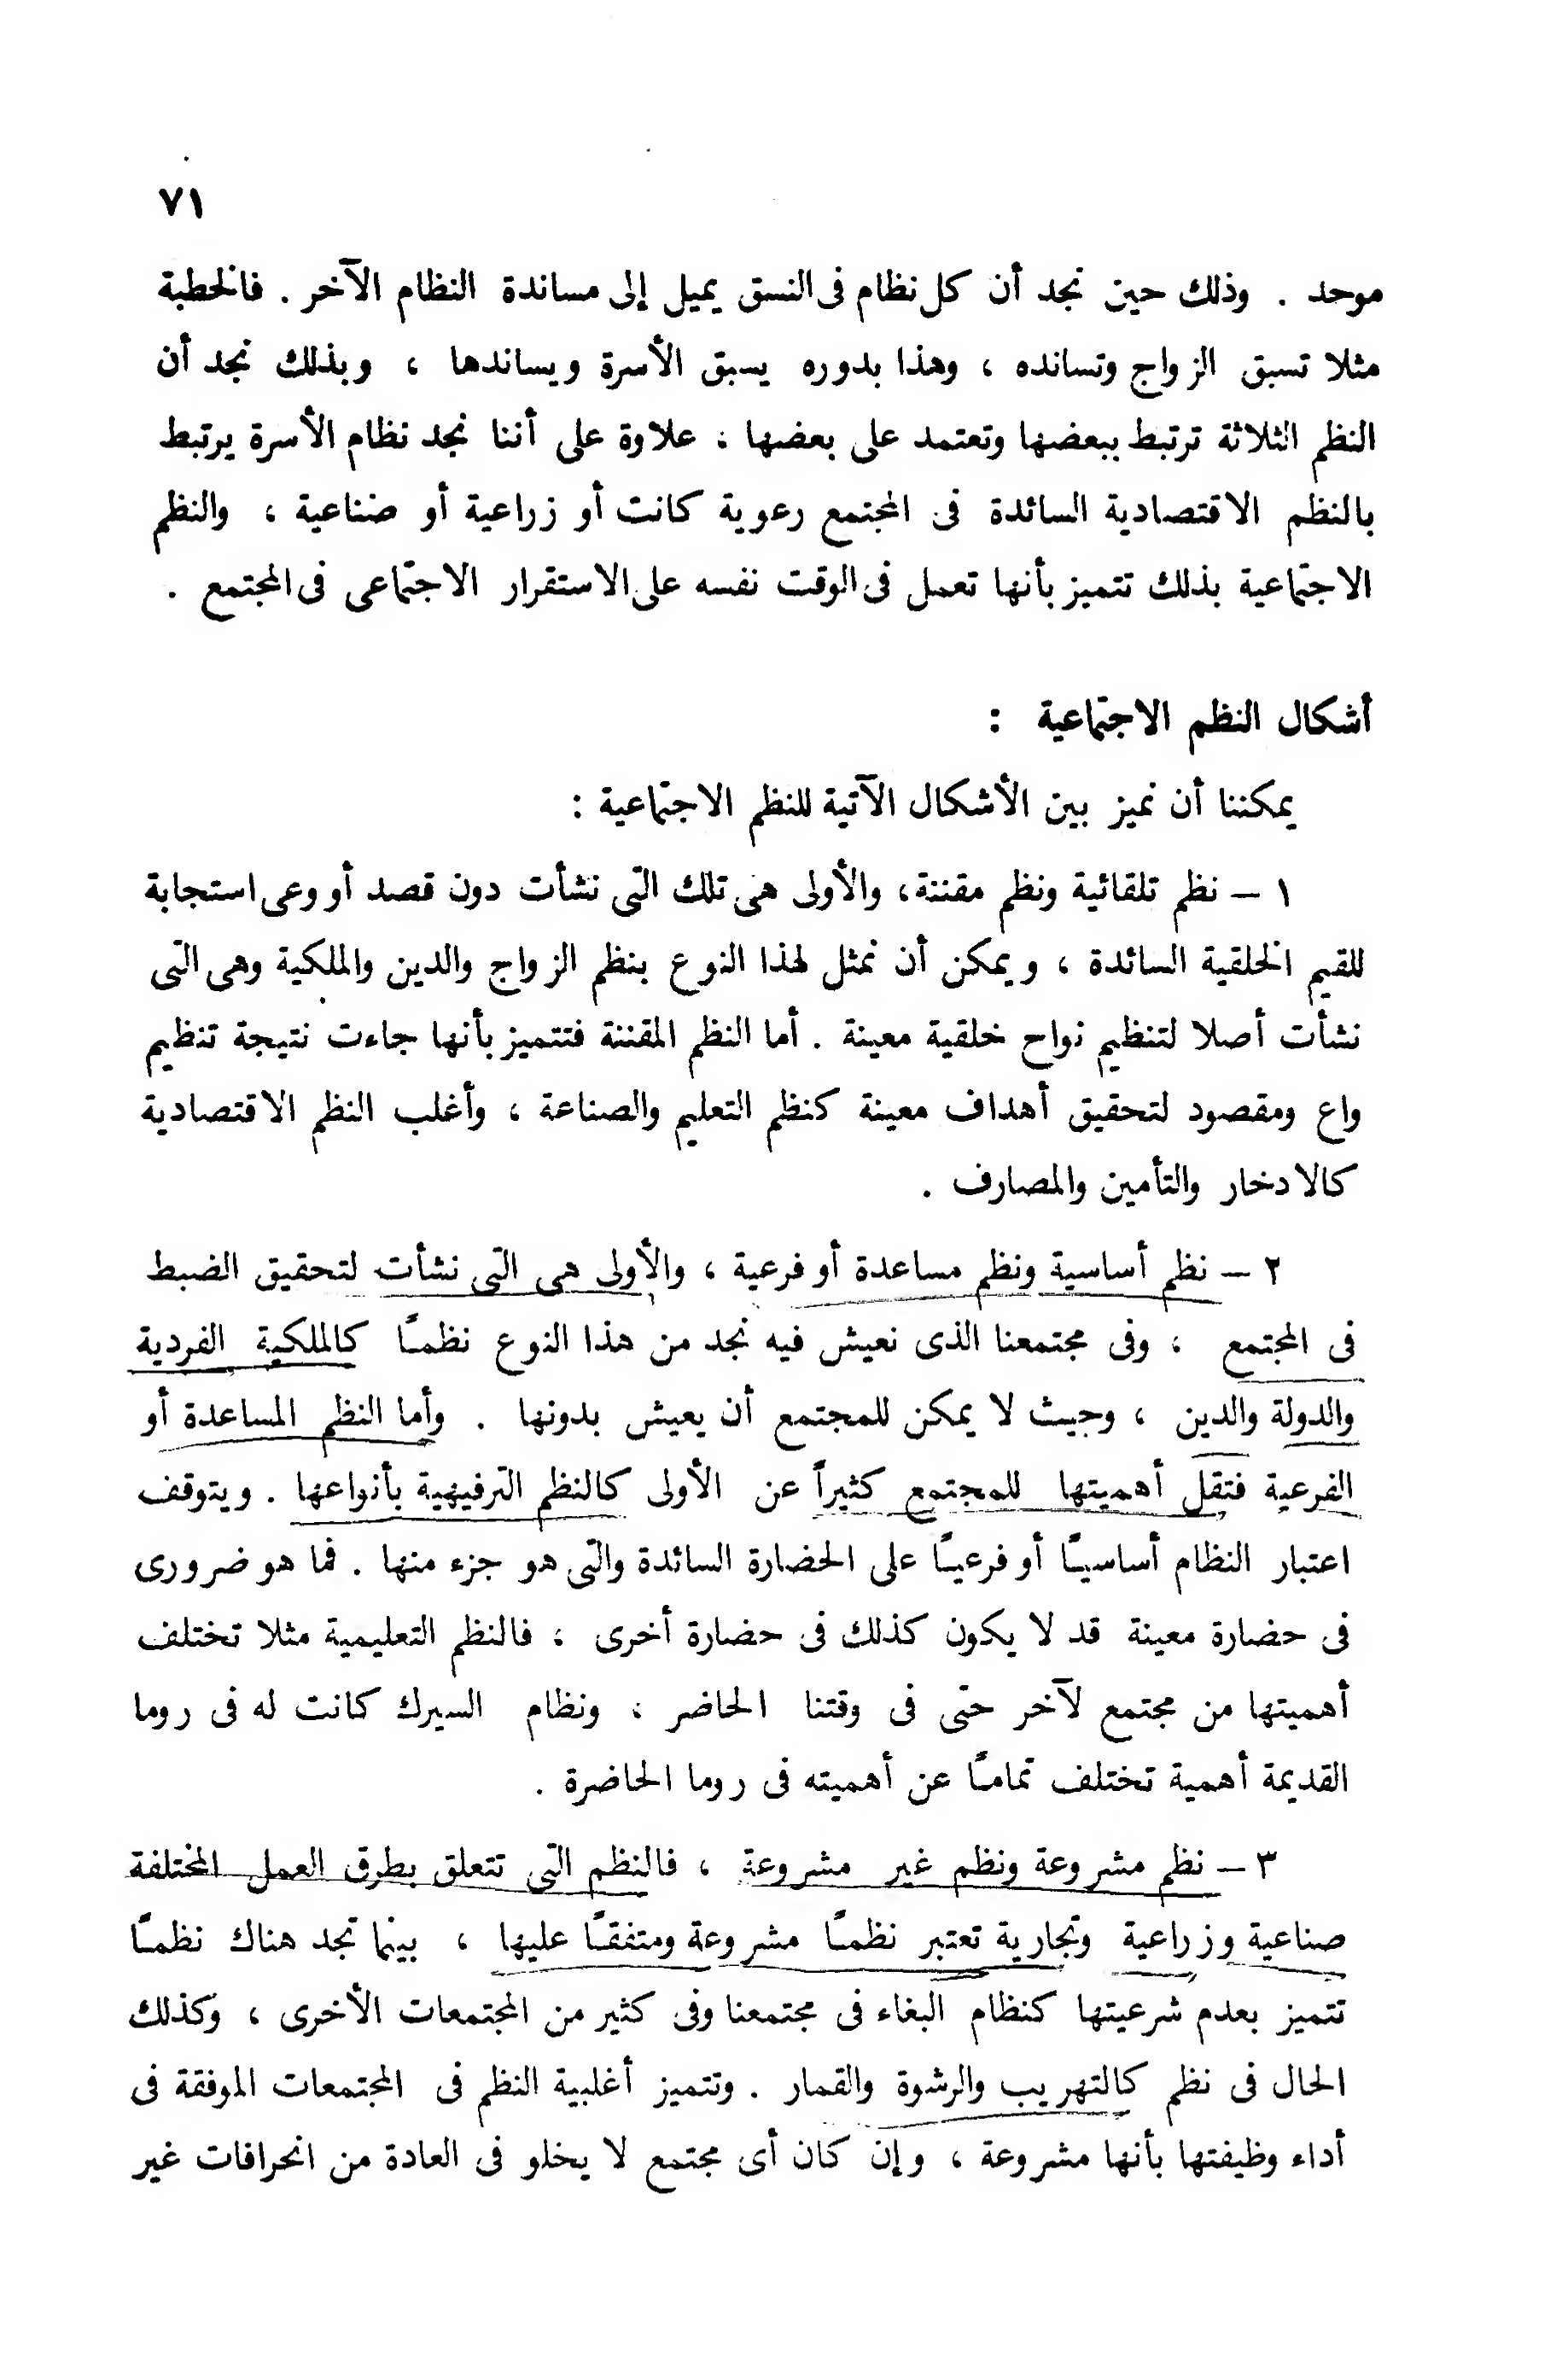 ٧١
موحد . وذلك حين نجد أن كل نظام فى النسق يميل إلى مساندة النظام الآخر . فالخطبة
مثلا تسبق الزواج وتسانده ، وهذا بدوره يسبق الأسرة ويساندها ، وبذلك نجد أن
النظم الثلاثة ترتبط ببعضها وتعتمد على بعضها ، علاوة على أننا نجد نظام الأسرة يرتبط
بالنظم الاقتصادية السائدة فى المجتمع رعوية كانت أو زراعية أو صناعية ، والنظم
الاجتماعية بذلك تتميز بأنها تعمل فى الوقت نفسه على الاستقرار الاجتماعى فى المجتمع .
أشكال النظم الاجتماعية :
يمكننا أن نميز بين الأشكال الآتية للنظم الاجتماعية :
١ – نظم تلقائية ونظم مقننة ، والأولى هى تلك التى نشأت دون قصد أو وعى استجابة
للقيم الخلقية السائدة ، ويمكن أن نمثل لهذا النوع بنظم الزواج والدين والملكية وهى التى
نشأت أصلا لتنظيم نواح خلقية معينة . أما النظم المقننة فتتميز بأنها جاءت نتيجة تنظيم
واع ومقصود لتحقيق أهداف معينة كنظم التعليم والصناعة ، وأغلب النظم الاقتصادية
كالادخار والتأمين والمصارف .
٢ – نظم أساسية ونظم مساعدة أو فرعية ، والأولى هى التى نشأت لتحقيق الضبط
فى المجتمع ، وفى مجتمعنا الذى نعيش فيه نجد من هذا النوع نظمًا كالملكية الفردية
والدولة والدين ، وحيث لا يمكن للمجتمع أن يعيش بدونها . وأما النظم المساعدة أو
الفرعية فتقل أهميتها للمجتمع كثيراً عن الأولى كالنظم الترفيهية بأنواعها . ويتوقف
اعتبار النظام أساسيًا أو فرعيًا على الحضارة السائدة والتى هو جزء منها . فما هو ضرورى
فى حضارة معينة قد لا يكون كذلك فى حضارة أخرى ، فالنظم التعليمية مثلا تختلف
أهميتها من مجتمع لآخر حتى فى وقتنا الحاضر ، ونظام السيرك كانت له فى روما
القديمة أهمية تختلف تمامًا عن أهميته فى روما الحاضرة .
٣ – نظم مشروعة ونظم غير مشروعة ، فالنظم التى تتعلق بطرق العمل المختلفة
صناعية وزراعية وتجارية تعتبر نظمًا مشروعة ومتفقًا عليها ، بينما تجد هناك نظمًا
تتميز بعدم شرعيتها كنظام البغاء فى مجتمعنا وفى كثير من المجتمعات الأخرى ، وكذلك
الحال فى نظم كالتهريب والرشوة والقمار . وتتميز أغلبية النظم فى المجتمعات الموفقة فى
أداء وظيفتها بأنها مشروعة ، وإن كان أى مجتمع لا يخلو فى العادة من انحرافات غير